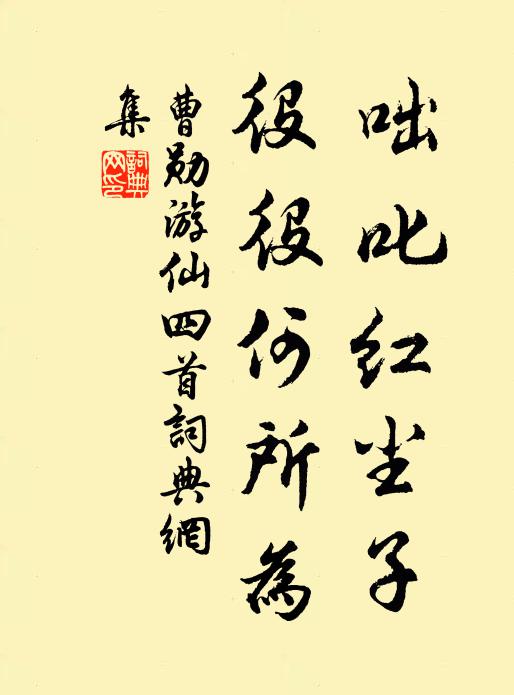 咄叱红尘子
役役何所為
曹勋游仙四首詞典網
集
詞典
网印